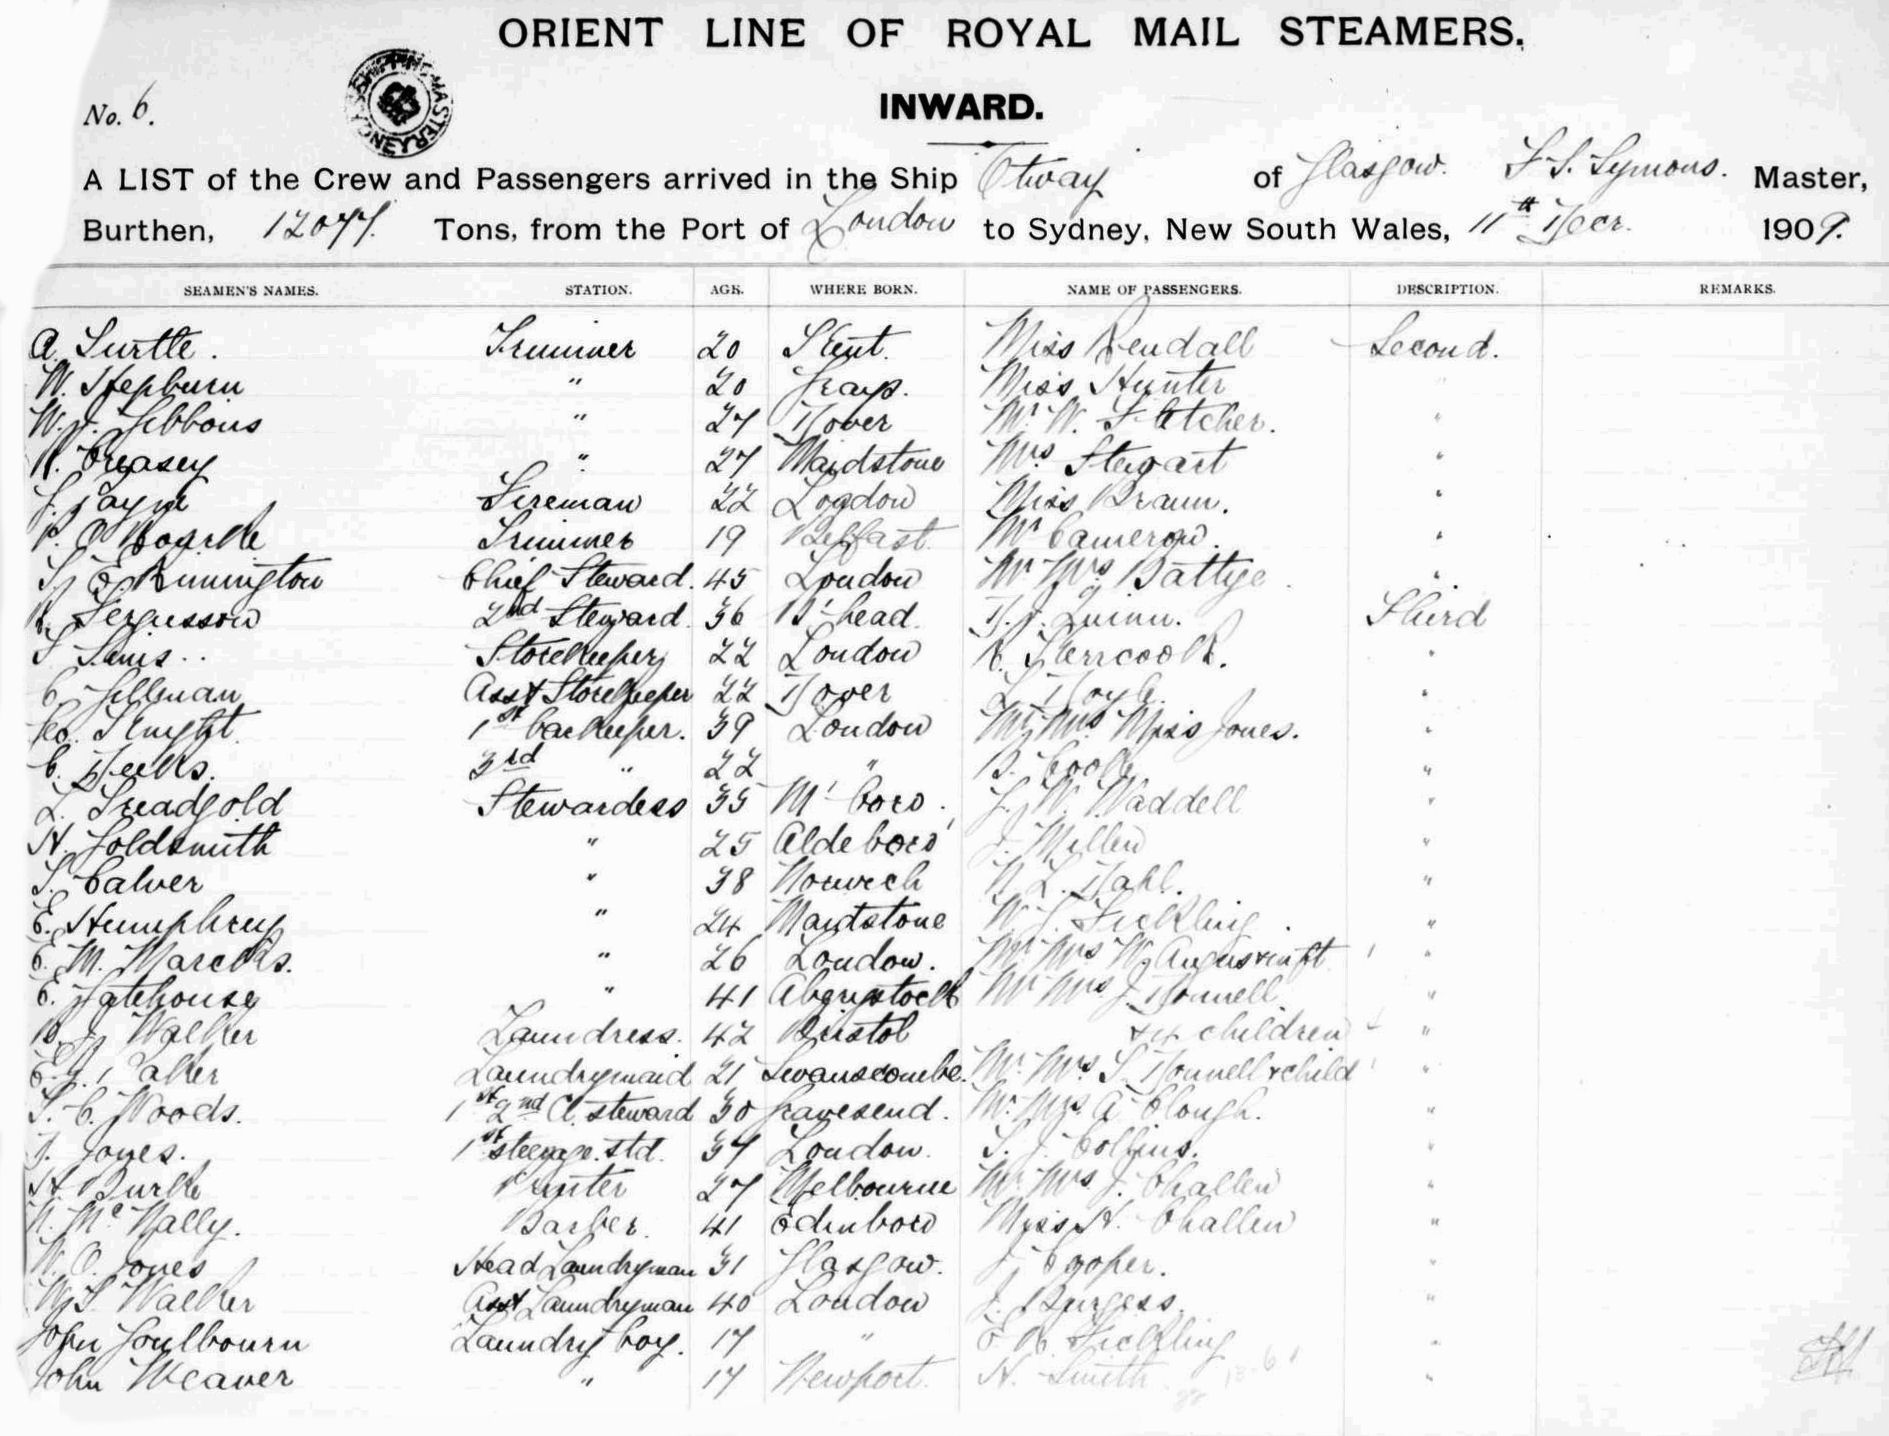 ORIENT LINE OF ROYAL MAIL STEAMERS.
No. 6.
SHIPPING MASTER SYDNEY
INWARD.
A LIST of the Crew and Passengers arrived in the Ship Otway of Glasgow. Symons. Master,
Burthen, 12077. Tons, from the Port of London to Sydney, New South Wales, 11th Decr. 1909.
SEAMEN'S NAMES. STATION. AGE. WHERE BORN. NAME OF PASSENGERS. DESCRIPTION. REMARKS.
A. Turtle. Trimmer 20 Kent. Miss Kendall Second.
W. Hepburn " 20 Grays. Miss Hunter "
W. J. Gibbons " 27 Dover Mr. W. Fletcher. "
Creasey " 27 Maidstone Mrs Stewart "
J. Payne Fireman 22 London Miss Braun. "
P. O'Rourke Trimmer 19 Belfast. Mr Cameron. "
E. Rimmington Chief Steward. 45 London Mr Mrs Battye "
Fergusson 2nd Steward. 36 B'head. D. J. Quinn. Third
Sims Storekeeper 22 London "
C. Gillman Asst Storekeeper 22 Dover Doyle. "
Knight 1st barkeeper. 39 London Mr Mrs Miss Jones. "
C. Weeks. 3rd " 22 " Cook "
L. Treadgold Stewardess 35 M'boro. J. W. Waddell "
H. Goldsmith " 25 Aldeboro' J. Millen "
S. Calver " 38 Norwich N. L. Dahl. "
E. Humphrey " 24 Maidstone W. J. Fickling. "
E. M. Marcks. " 26 London. Mr Mrs W. Angus & inft 1 "
E. Gatehouse " 41 Aberystwth Mr Mrs J Donnell "
B. J. Walker Laundress. 42 Bristol & 4 children "
E. J. Walker Laundrymaid 21 Swanscombe. Mr Mrs S. Donnell & child 1 "
S. C. Woods. 1st 2nd Cl. steward 30 Gravesend. Mr. Mrs. A Clough. "
J. Jones. 1st steerage. std. 37 London. S. J. Collins. "
H. Burke Printer 27 Melbourne Mr. Mrs. J. Challen "
Mc Nally. Barber. 41 Edinboro Miss H. Challen "
W. O. Jones Head Laundryman 31 Glasgow. J. Cooper. "
W. S. Walker Asst Laundryman 40 London J. Burgess. "
John Goulbourn Laundry boy. 17 " Fickling "
John Weaver " 17 Newport. H. Smith "